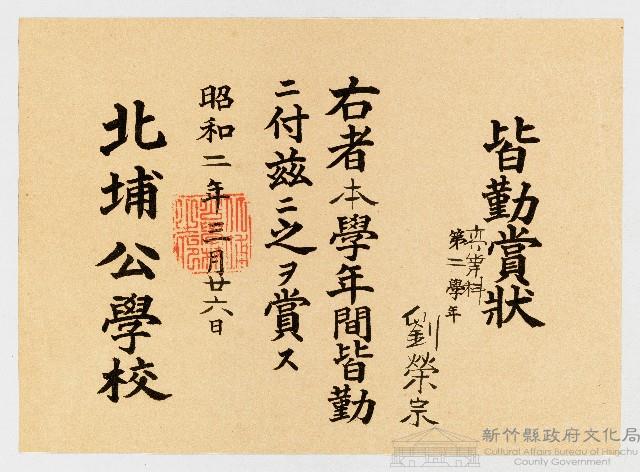 皆勤賞狀
実業科
第二學年
劉榮宗
右者本學年間皆勤
ニ付茲ニ之ヲ賞ス
昭和二年三月廿六日
北埔公學校
新竹縣政府文化局
Cultural Affairs Bureau of Hsinchu
County Government